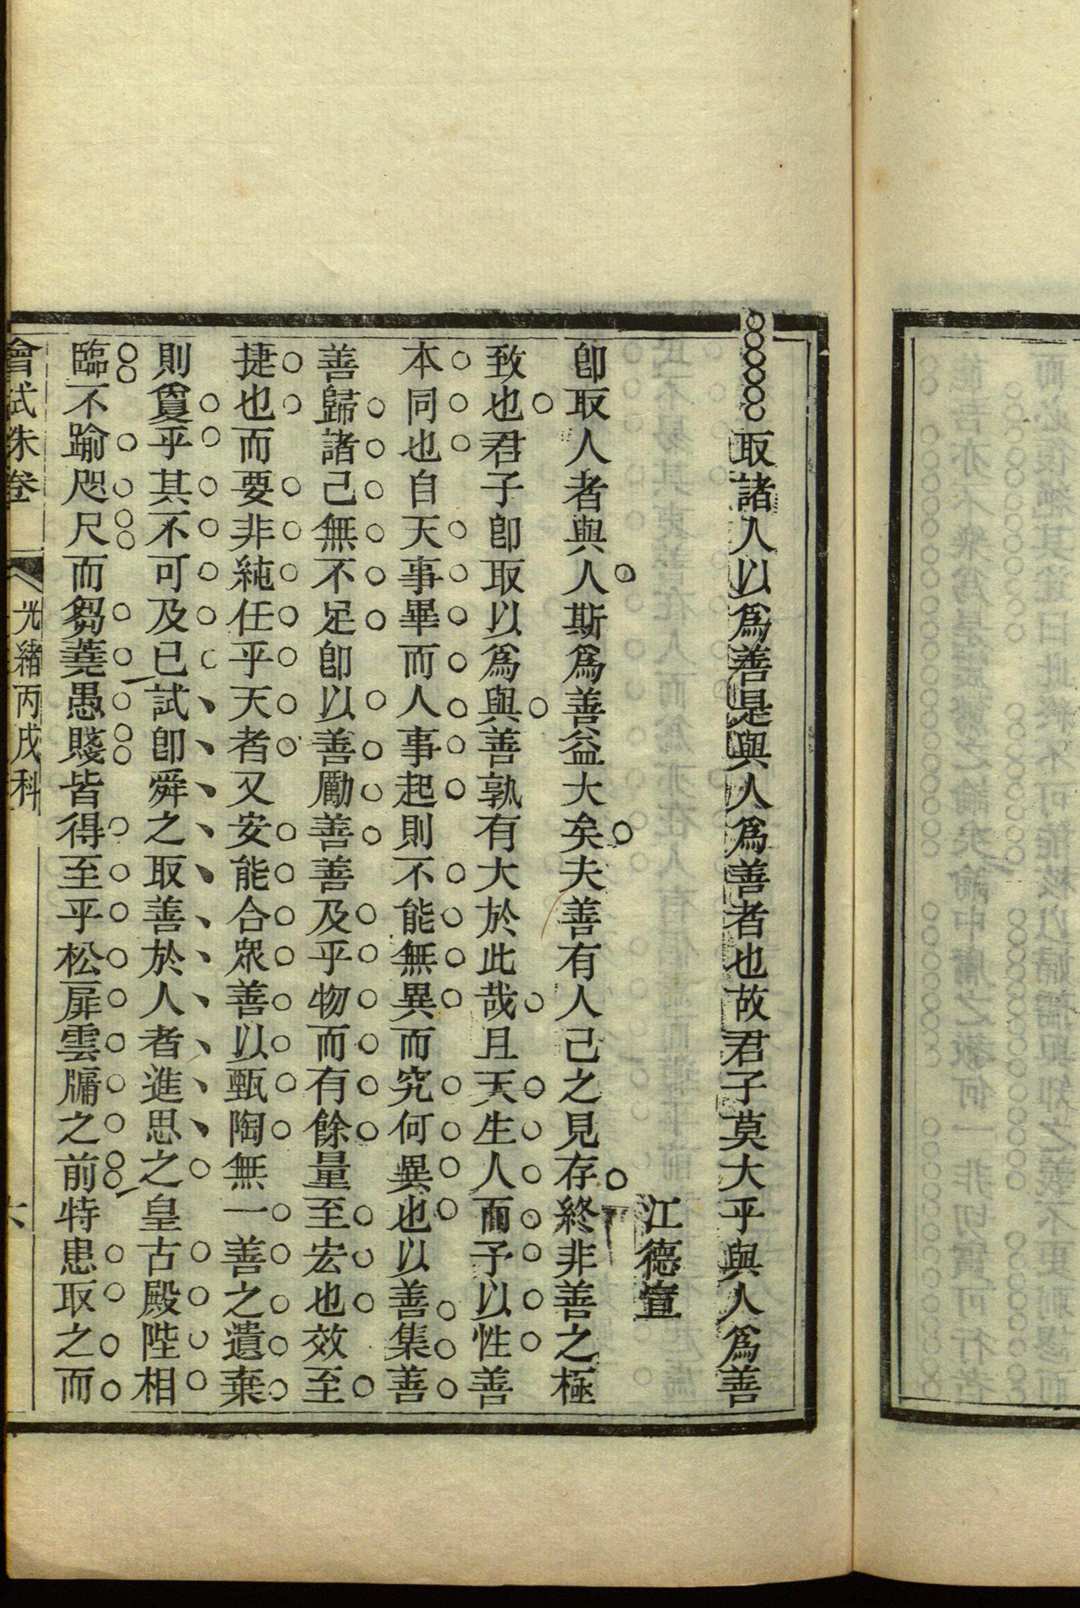 取諸人以爲善是與人爲善者也故君子莫大乎與人爲善
江德宣
卽取人者與人斯爲善益大矣夫善有人己之見存終非善之極
致也君子卽取以爲與善孰有大於此哉且天生人而予以性善
本同也自天事畢而人事起則不能無異而究何異也以善集善
善歸諸己無不足卽以善勵善善及乎物而有餘量至宏也效至
捷也而要非純任乎天者又安能合衆善以甄陶無一善之遺棄
則敻乎其不可及已試卽舜之取善於人者進思之皇古殿陛相
臨不踰咫尺而芻蕘愚賤皆得至乎松扉雲牖之前特患取之而
會試朱卷
光緒丙戌科
六